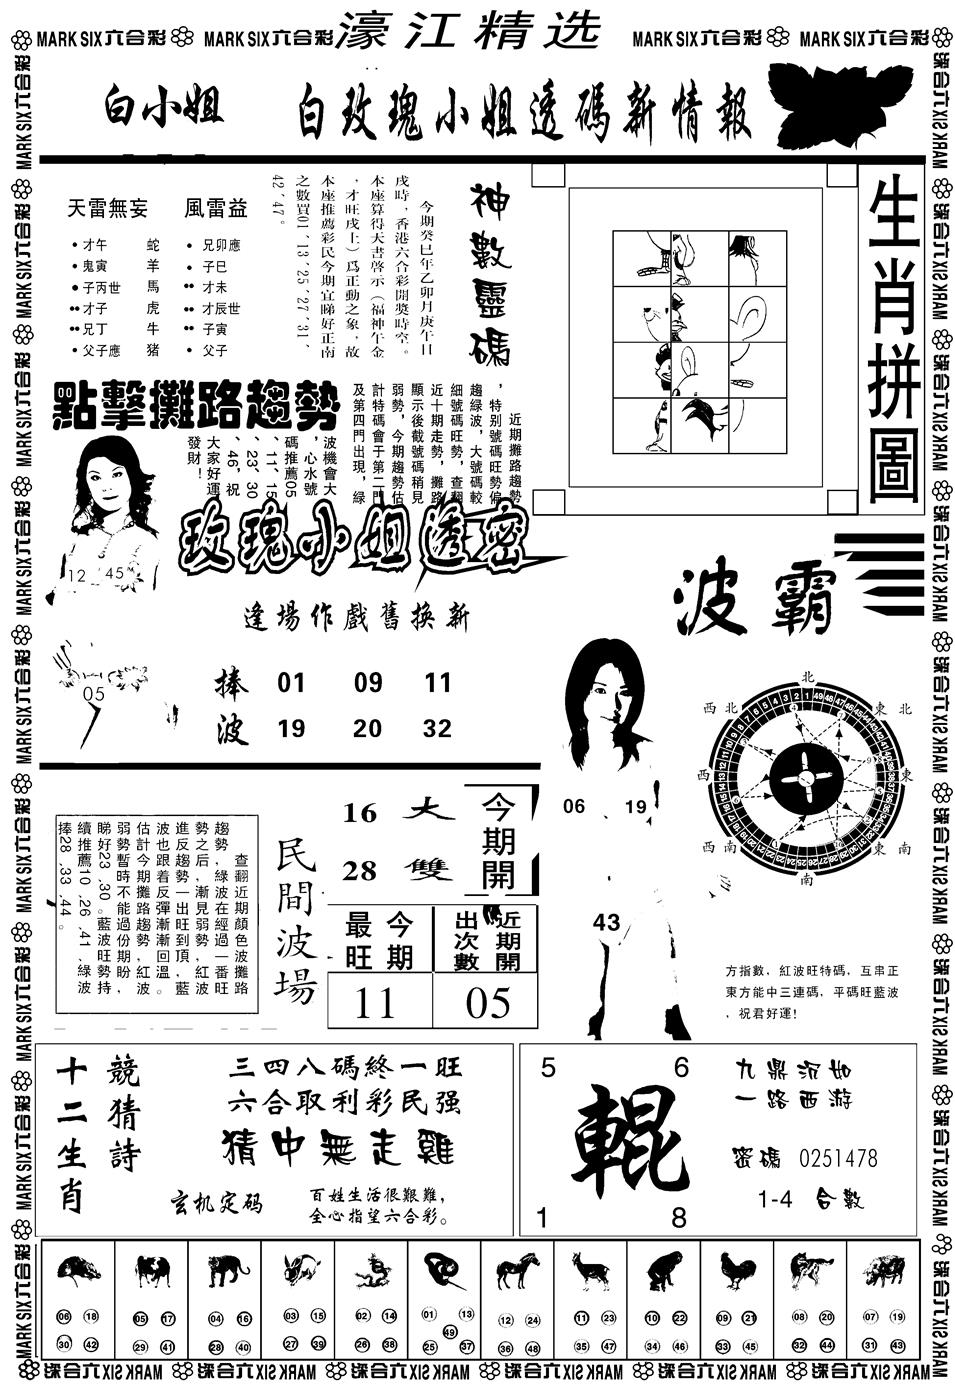 MARK SIX六合彩 MARK SIX六合彩 濠江精选 MARK SIX六合彩 MARK SIX六合彩
白小姐 白玫瑰小姐透碼新情報
天雷無妄 風雷益
·才午 蛇 ·兄卯應
·鬼寅 羊 ·子巳
●子丙世 馬 ··才未
··才子 虎 ··才辰世
··兄丁 牛 ··子寅
·父子應 豬 ·父子
神數靈碼
今期癸巳年乙卯月庚午日
戌時，香港六合彩開獎時空。
本座算得天書啓示（福神午金
，才旺戌上）爲正動之象，故
本座推薦彩民今期宜睇好正南
之數買01、13、25、27、31、
42、47。
生肖拼圖
點擊攤路趨勢
近期攤路趨勢
，特别號碼旺勢偏
趨綠波，大號碼較
細號碼旺勢，查翻
近十期走勢，攤路
顯示後截號碼稍見
弱勢，今期趨勢估
計特碼會于第二門
及第四門出現，綠
波機會大
，心水號
碼推薦05
、11、15
、23、30
、46，祝
大家好運
發財！
12 45
05
玫瑰小姐透密
逢場作戲舊換新
捧 01 09 11
波 19 20 32
波霸
北
西北 東北
西 東
西南 東南
南
06 19
43
方指數，紅波旺特碼，互串正
東方能中三連碼，平碼旺藍波
，祝君好運！
查翻近期顏色波攤路
趨勢，綠波在經過一番旺
勢之后，漸見弱勢，紅波
進反趨勢一出旺到頂，藍
波也跟着反彈漸漸回溫。
估計今期攤路趨勢紅波
弱勢暫時不能過份期盼，
睇好23、30。藍波旺勢持
續推薦10、26、41、綠波
捧28、33、44。
民間波場
16 大 今期開
28 雙
今期最旺 近期開出次數
11 05
競猜詩
十二生肖
三四八碼終一旺
六合取利彩民强
猜中無走雞
玄机定码
百姓生活很艱難，
全心指望六合彩。
5 6
輥
1 8
九鼎沉如
一路西游
密碼 0251478
1-4 合數
06 18 05 17 04 16 03 15 02 14 01 13 12 24 11 23 10 22 09 21 08 20 07 19
49
30 42 29 41 28 40 27 39 26 38 25 37 36 48 35 47 34 46 33 45 32 44 31 43
MARK SIX六合彩 MARK SIX六合彩 MARK SIX六合彩 MARK SIX六合彩 MARK SIX六合彩 MARK SIX六合彩